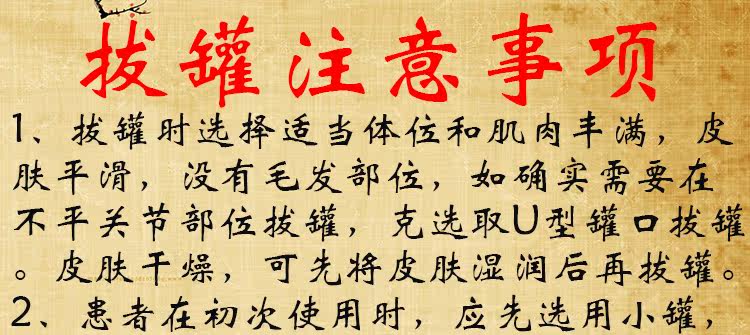 拔罐注意事项
1、拔罐时选择适当体位和肌肉丰满，皮
肤平滑，没有毛发部位，如确实需要在
不平关节部位拔罐，克选取U型罐口拔罐
。皮肤干燥，可先将皮肤湿润后再拔罐。
2、患者在初次使用时，应先选用小罐，